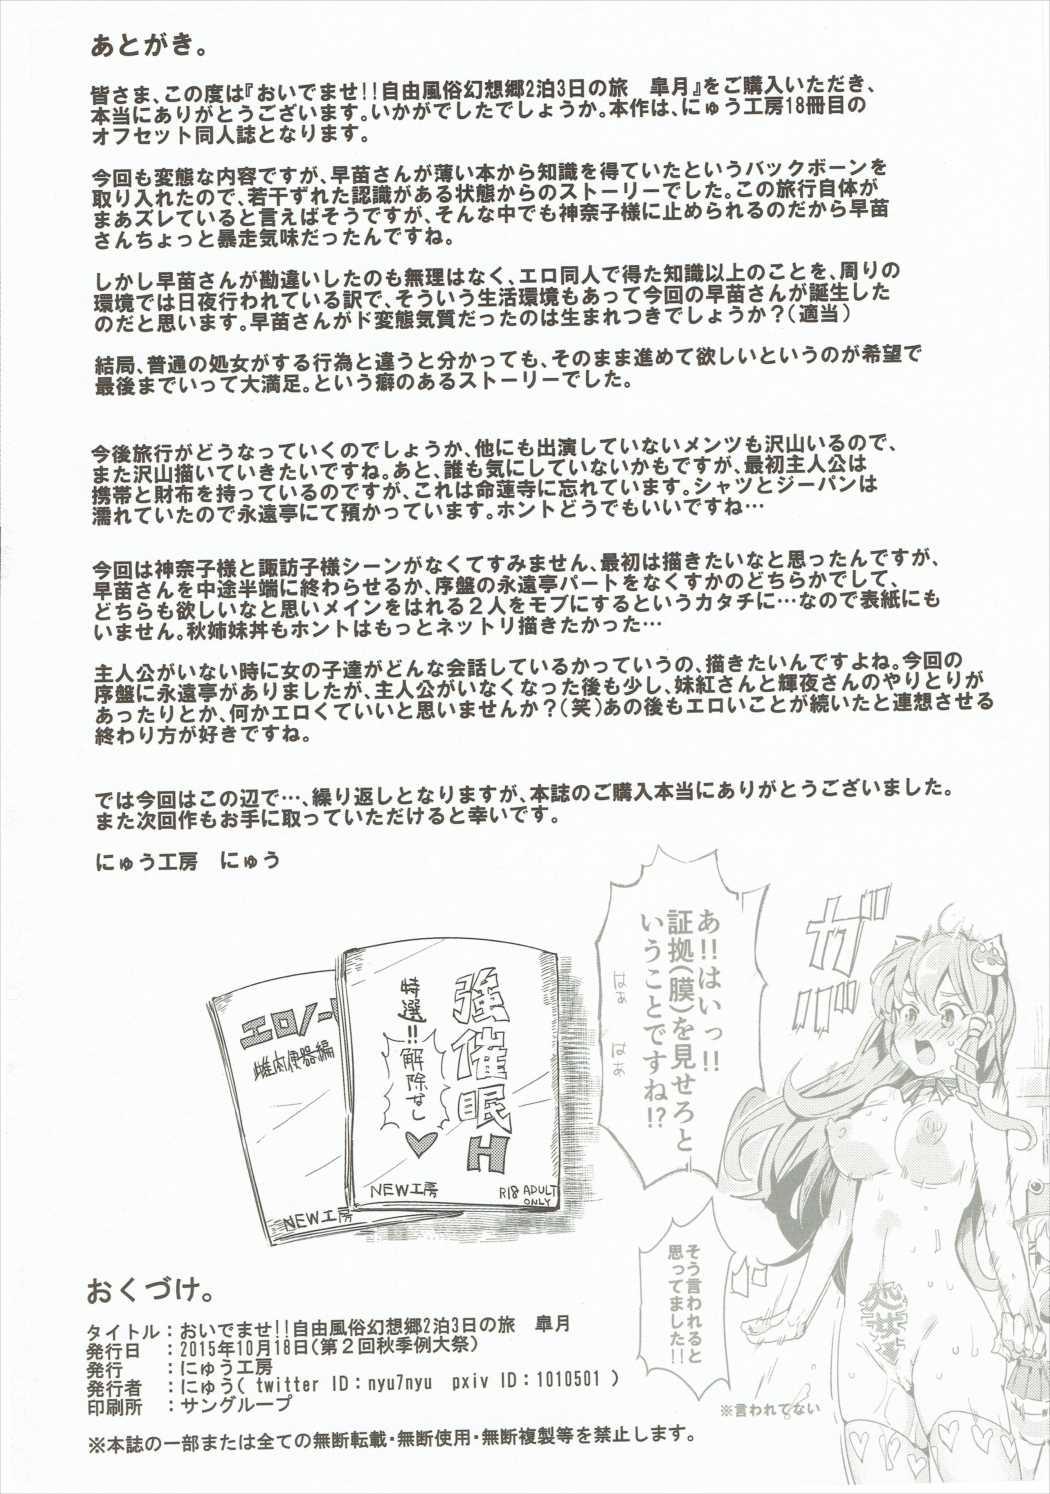 あとがき。
皆さま、この度は『おいでませ!!自由風俗幻想郷2泊3日の旅　皐月』をご購入いただき、
本当にありがとうございます。いかがでしたでしょうか。本作は、にゅう工房18冊目の
オフセット同人誌となります。
今回も変態な内容ですが、早苗さんが薄い本から知識を得ていたというバックボーンを
取り入れたので、若干ずれた認識がある状態からのストーリーでした。この旅行自体が
まあズレていると言えばそうですが、そんな中でも神奈子様に止められるのだから早苗
さんちょっと暴走気味だったんですね。
しかし早苗さんが勘違いしたのも無理はなく、エロ同人で得た知識以上のことを、周りの
環境では日夜行われている訳で、そういう生活環境もあって今回の早苗さんが誕生した
のだと思います。早苗さんがド変態気質だったのは生まれつきでしょうか？（適当）
結局、普通の処女がする行為と違うと分かっても、そのまま進めて欲しいというのが希望で
最後までいって大満足。という癖のあるストーリーでした。
今後旅行がどうなっていくのでしょうか、他にも出演していないメンツも沢山いるので、
また沢山描いていきたいですね。あと、誰も気にしていないかもですが、最初主人公は
携帯と財布を持っているのですが、これは命蓮寺に忘れています。シャツとジーパンは
濡れていたので永遠亭にて預かっています。ホントどうでもいいですね…
今回は神奈子様と諏訪子様シーンがなくてすみません、最初は描きたいなと思ったんですが、
早苗さんを中途半端に終わらせるか、序盤の永遠亭パートをなくすかのどちらかでして、
どちらも欲しいなと思いメインをはれる２人をモブにするというカタチに…なので表紙にも
いません。秋姉妹丼もホントはもっとネットリ描きたかった…
主人公がいない時に女の子達がどんな会話しているかっていうの、描きたいんですよね。今回の
序盤に永遠亭がありましたが、主人公がいなくなった後も少し、妹紅さんと輝夜さんのやりとりが
あったりとか、何かエロくていいと思いませんか？（笑）あの後もエロいことが続いたと連想させる
終わり方が好きですね。
では今回はこの辺で…、繰り返しとなりますが、本誌のご購入本当にありがとうございました。
また次回作もお手に取っていただけると幸いです。
にゅう工房　にゅう
あ!!はいっ!!
証拠（膜）を見せろと
いうことですね!?
はぁ
はぁ
ガバッ
エロノー
雌肉便器編
NEW工房
強催眠H
特選!!解除なし♥
NEW工房
R18 ADULT
ONLY
そう言われると
思ってました!!
処女
※言われてない
おくづけ。
タイトル：おいでませ!!自由風俗幻想郷2泊3日の旅　皐月
発行日　：2015年10月18日（第２回秋季例大祭）
発行　　：にゅう工房
発行者　：にゅう( twitter ID：nyu7nyu　pxiv ID：1010501 )
印刷所　：サングループ
※本誌の一部または全ての無断転載・無断使用・無断複製等を禁止します。